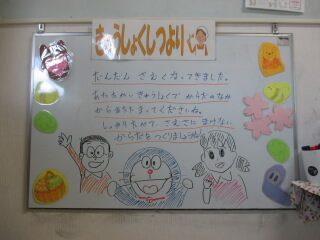 きゅうしょくしつより
だんだん さむくなってきました。
あたたかい きゅうしょくで からだのなか
からあたたまってくださいね。
しっかりたべて、さむさに まけない
からだをつくりましょう。